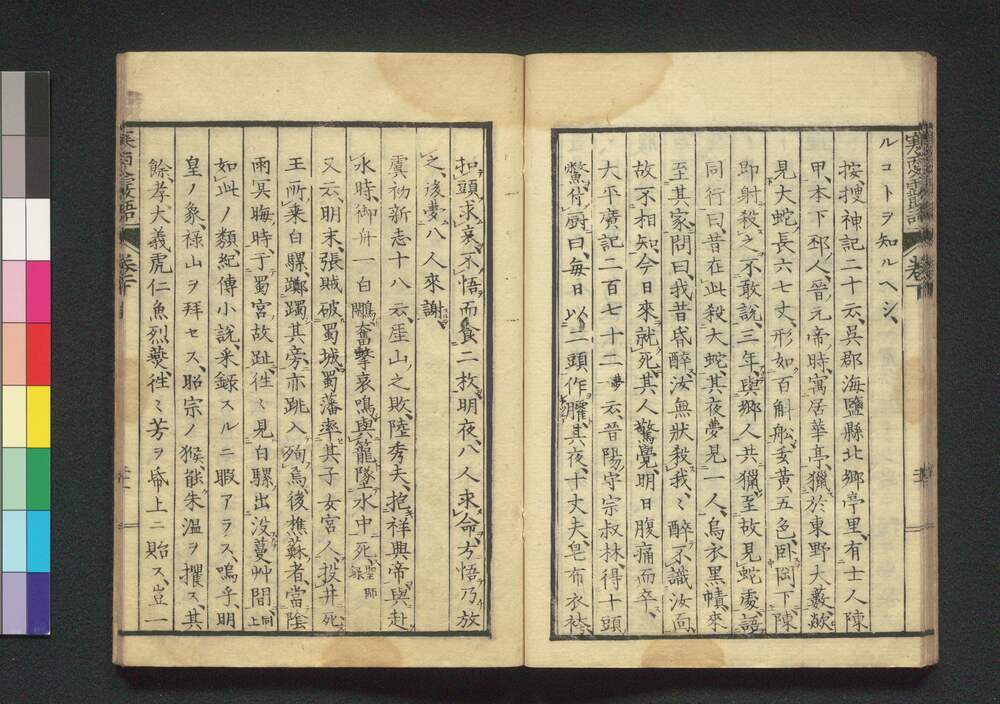 ルコトヲ知ルヘシ、
按搜神記二十云、呉郡海鹽縣北鄉亭里、有士人陳
甲、本下邳人、晉元帝時、寓居華亭、獵於東野大藪、欻
見大蛇、長六七丈、形如百斛舩、玄黄五色、卧岡下、陳
即射殺之、不敢説、三年、與鄉人共獵、至故見蛇處、語
同行曰、昔在此殺大蛇、其夜夢見一人、烏衣黒幘、來
至其家、問曰、我昔昏醉、汝無狀殺我、我醉、不識汝面、
故不相知、今日來就死、其人驚覺、明日腹痛而卒、
大平廣記二百七十二夢云、晋陽守宗叔林、得十頭
鱉付厨曰、毎日以二頭作臛、其夜、十丈夫皂布衣袴、
扣頭求哀、不悟而食二枚、明夜、八人求命、方悟乃放
之、後夢八人來謝、
虞初新志十八云、厓山之敗、陸秀夫、抱祥興帝與赴
水時、御舟一白鷴、奮擊哀鳴、與籠墜水中死、
又云、明末、張賊破蜀城、蜀藩率其子女宮人、投井死、
王所乘白騾、躑躅其旁、亦跳入殉焉、後樵蘇者、當陰
雨冥晦時、于蜀宮故趾、徃々見白騾出没蔓艸間、同上
如此ノ類、紀傳小説、釆録スルニ暇アラス、嗚乎、明
皇ノ象、禄山ヲ拜セス、昭宗ノ猴、能朱温ヲ攫ス、其
餘、孝犬義虎仁魚烈燕、徃々芳ヲ帋上ニ貽ス、豈一
卷二